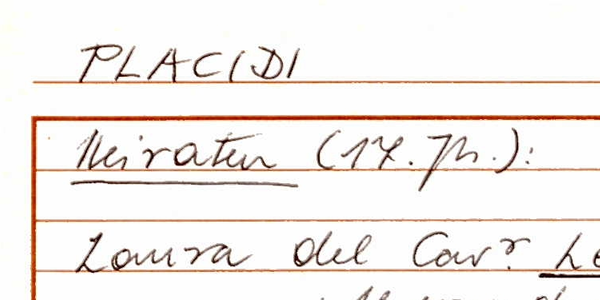 PLACIDI
Heiraten (17. Jh.):
Laura del Cav.r Le